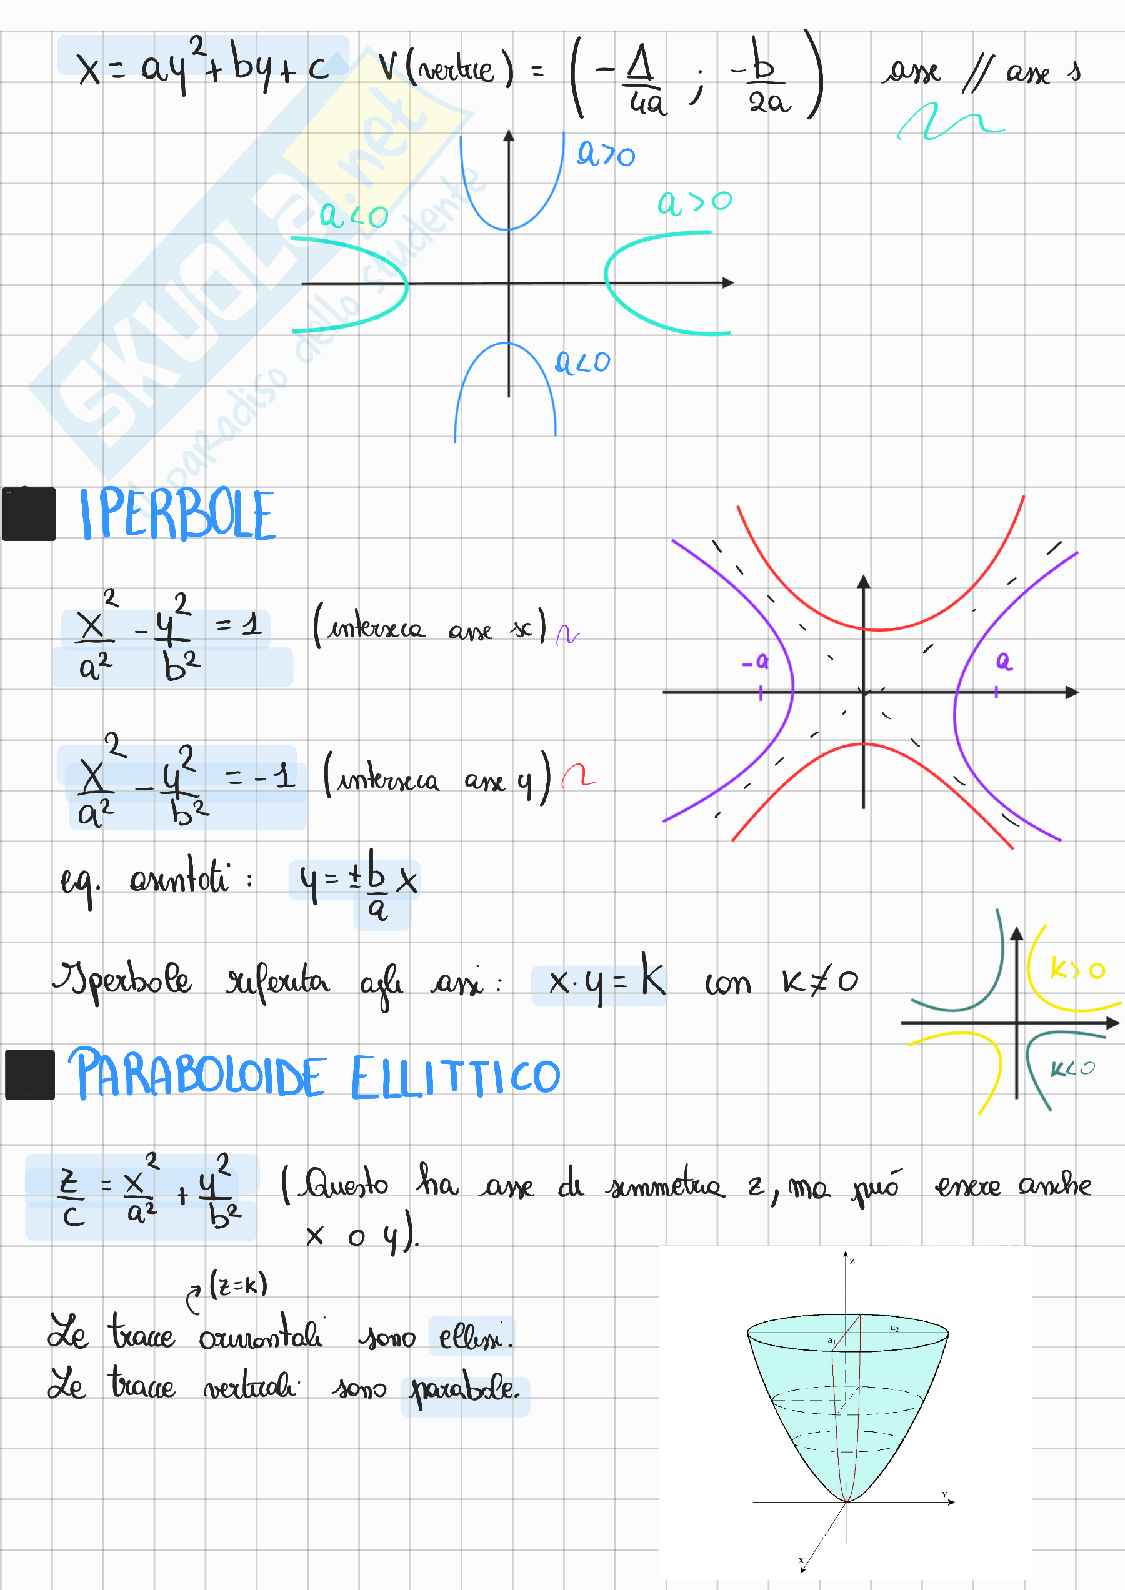 x = ay²+by+c V(vertice) = (-Δ/4a ; -b/2a) asse // asse x
a>0
a<0
a>0
a<0
SKUOLA.net
il paradiso dello studente
IPERBOLE
x²/a² - y²/b² = 1 (interseca asse x)
-a
a
x²/a² - y²/b² = -1 (interseca asse y)
eq. asintoti: y = ± b/a x
Iperbole riferita agli assi: x·y = k con k≠0
k>0
k<0
PARABOLOIDE ELLITTICO
z/c = x²/a² + y²/b² (Questo ha asse di simmetria z, ma può essere anche
x o y).
(z=k)
Le tracce orizzontali sono ellissi.
Le tracce verticali sono parabole.
z
a₁
a₂
Y
X